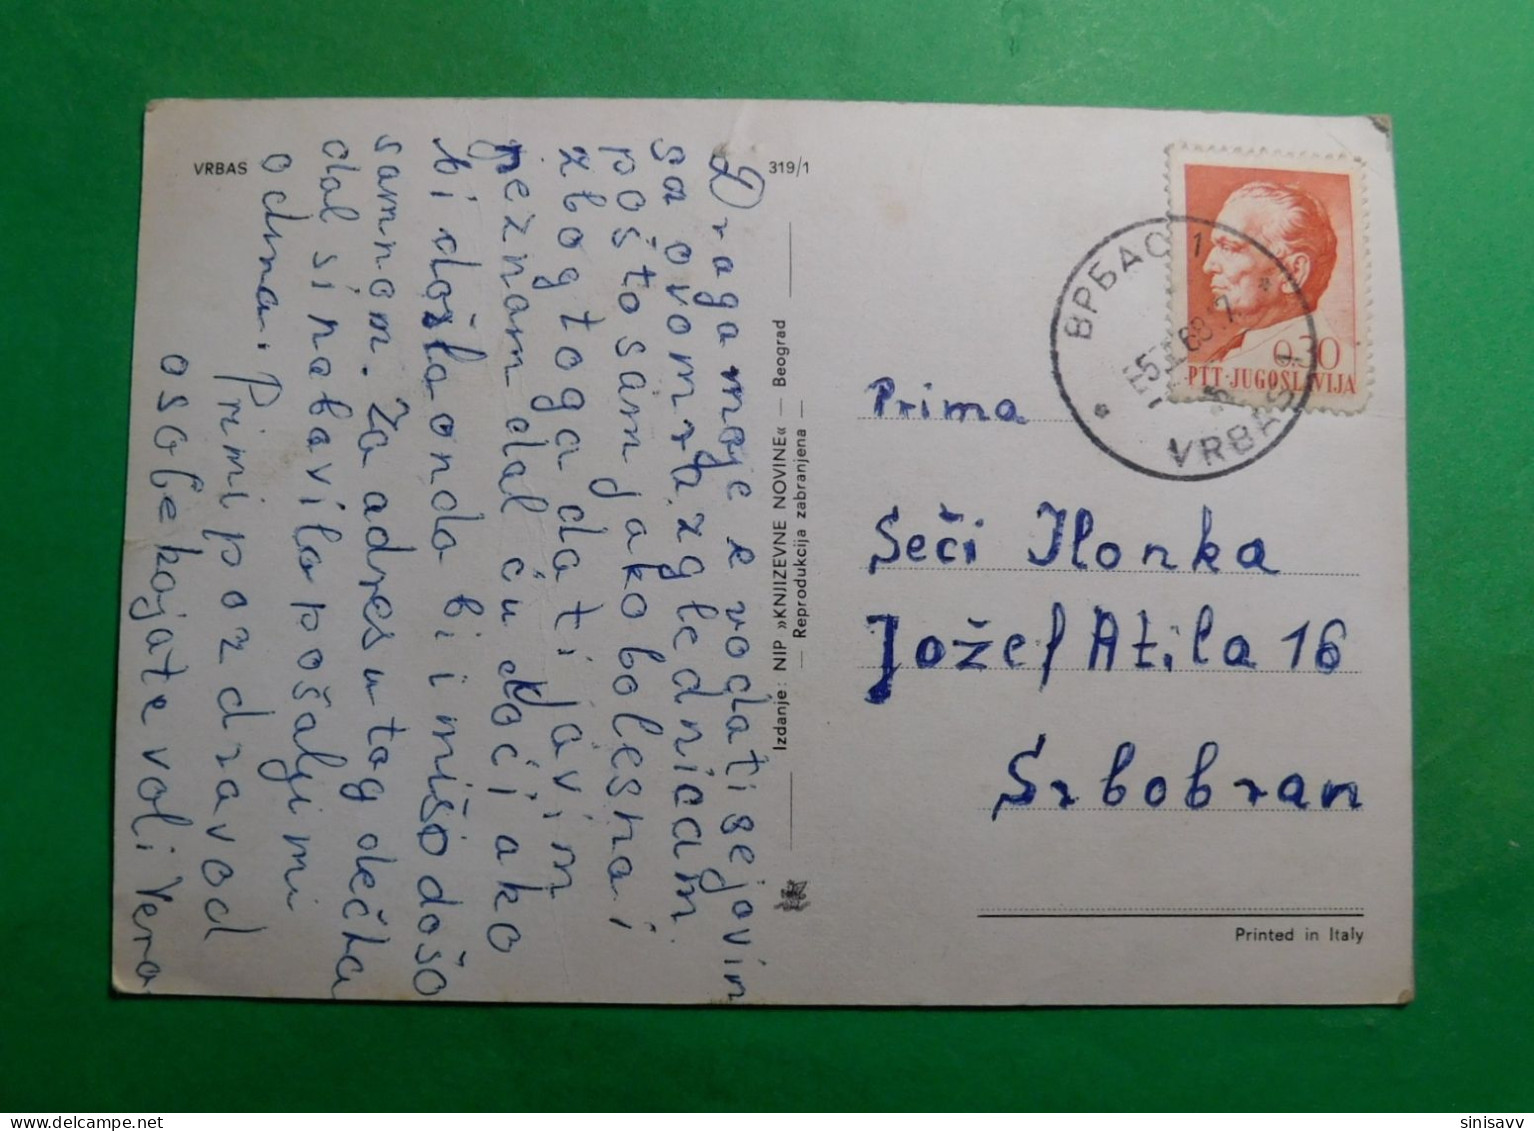 VRBAS
319/1
Draga moje evo dati se javim
sa ovom razglednicam
pošto sam jako bolesna i
zbog toga da ti javim
neznam dal ću doći ako
bi došla onda bi i mišo došo
samnom. Za adresu tog dečka
dal si nabavila pošalji mi
odma. Primi pozdrav od
osobe koja te voli Vera
Izdanje: NIP »KNJIZEVNE NOVINE« — Beograd
— Reprodukcija zabranjena —
ВРБАС 1
VRBAS
0.30
PTT-JUGOSLAVIJA
Prima
Seči Ilonka
Jožef Atila 16
Srbobran
Printed in Italy
sinisavv